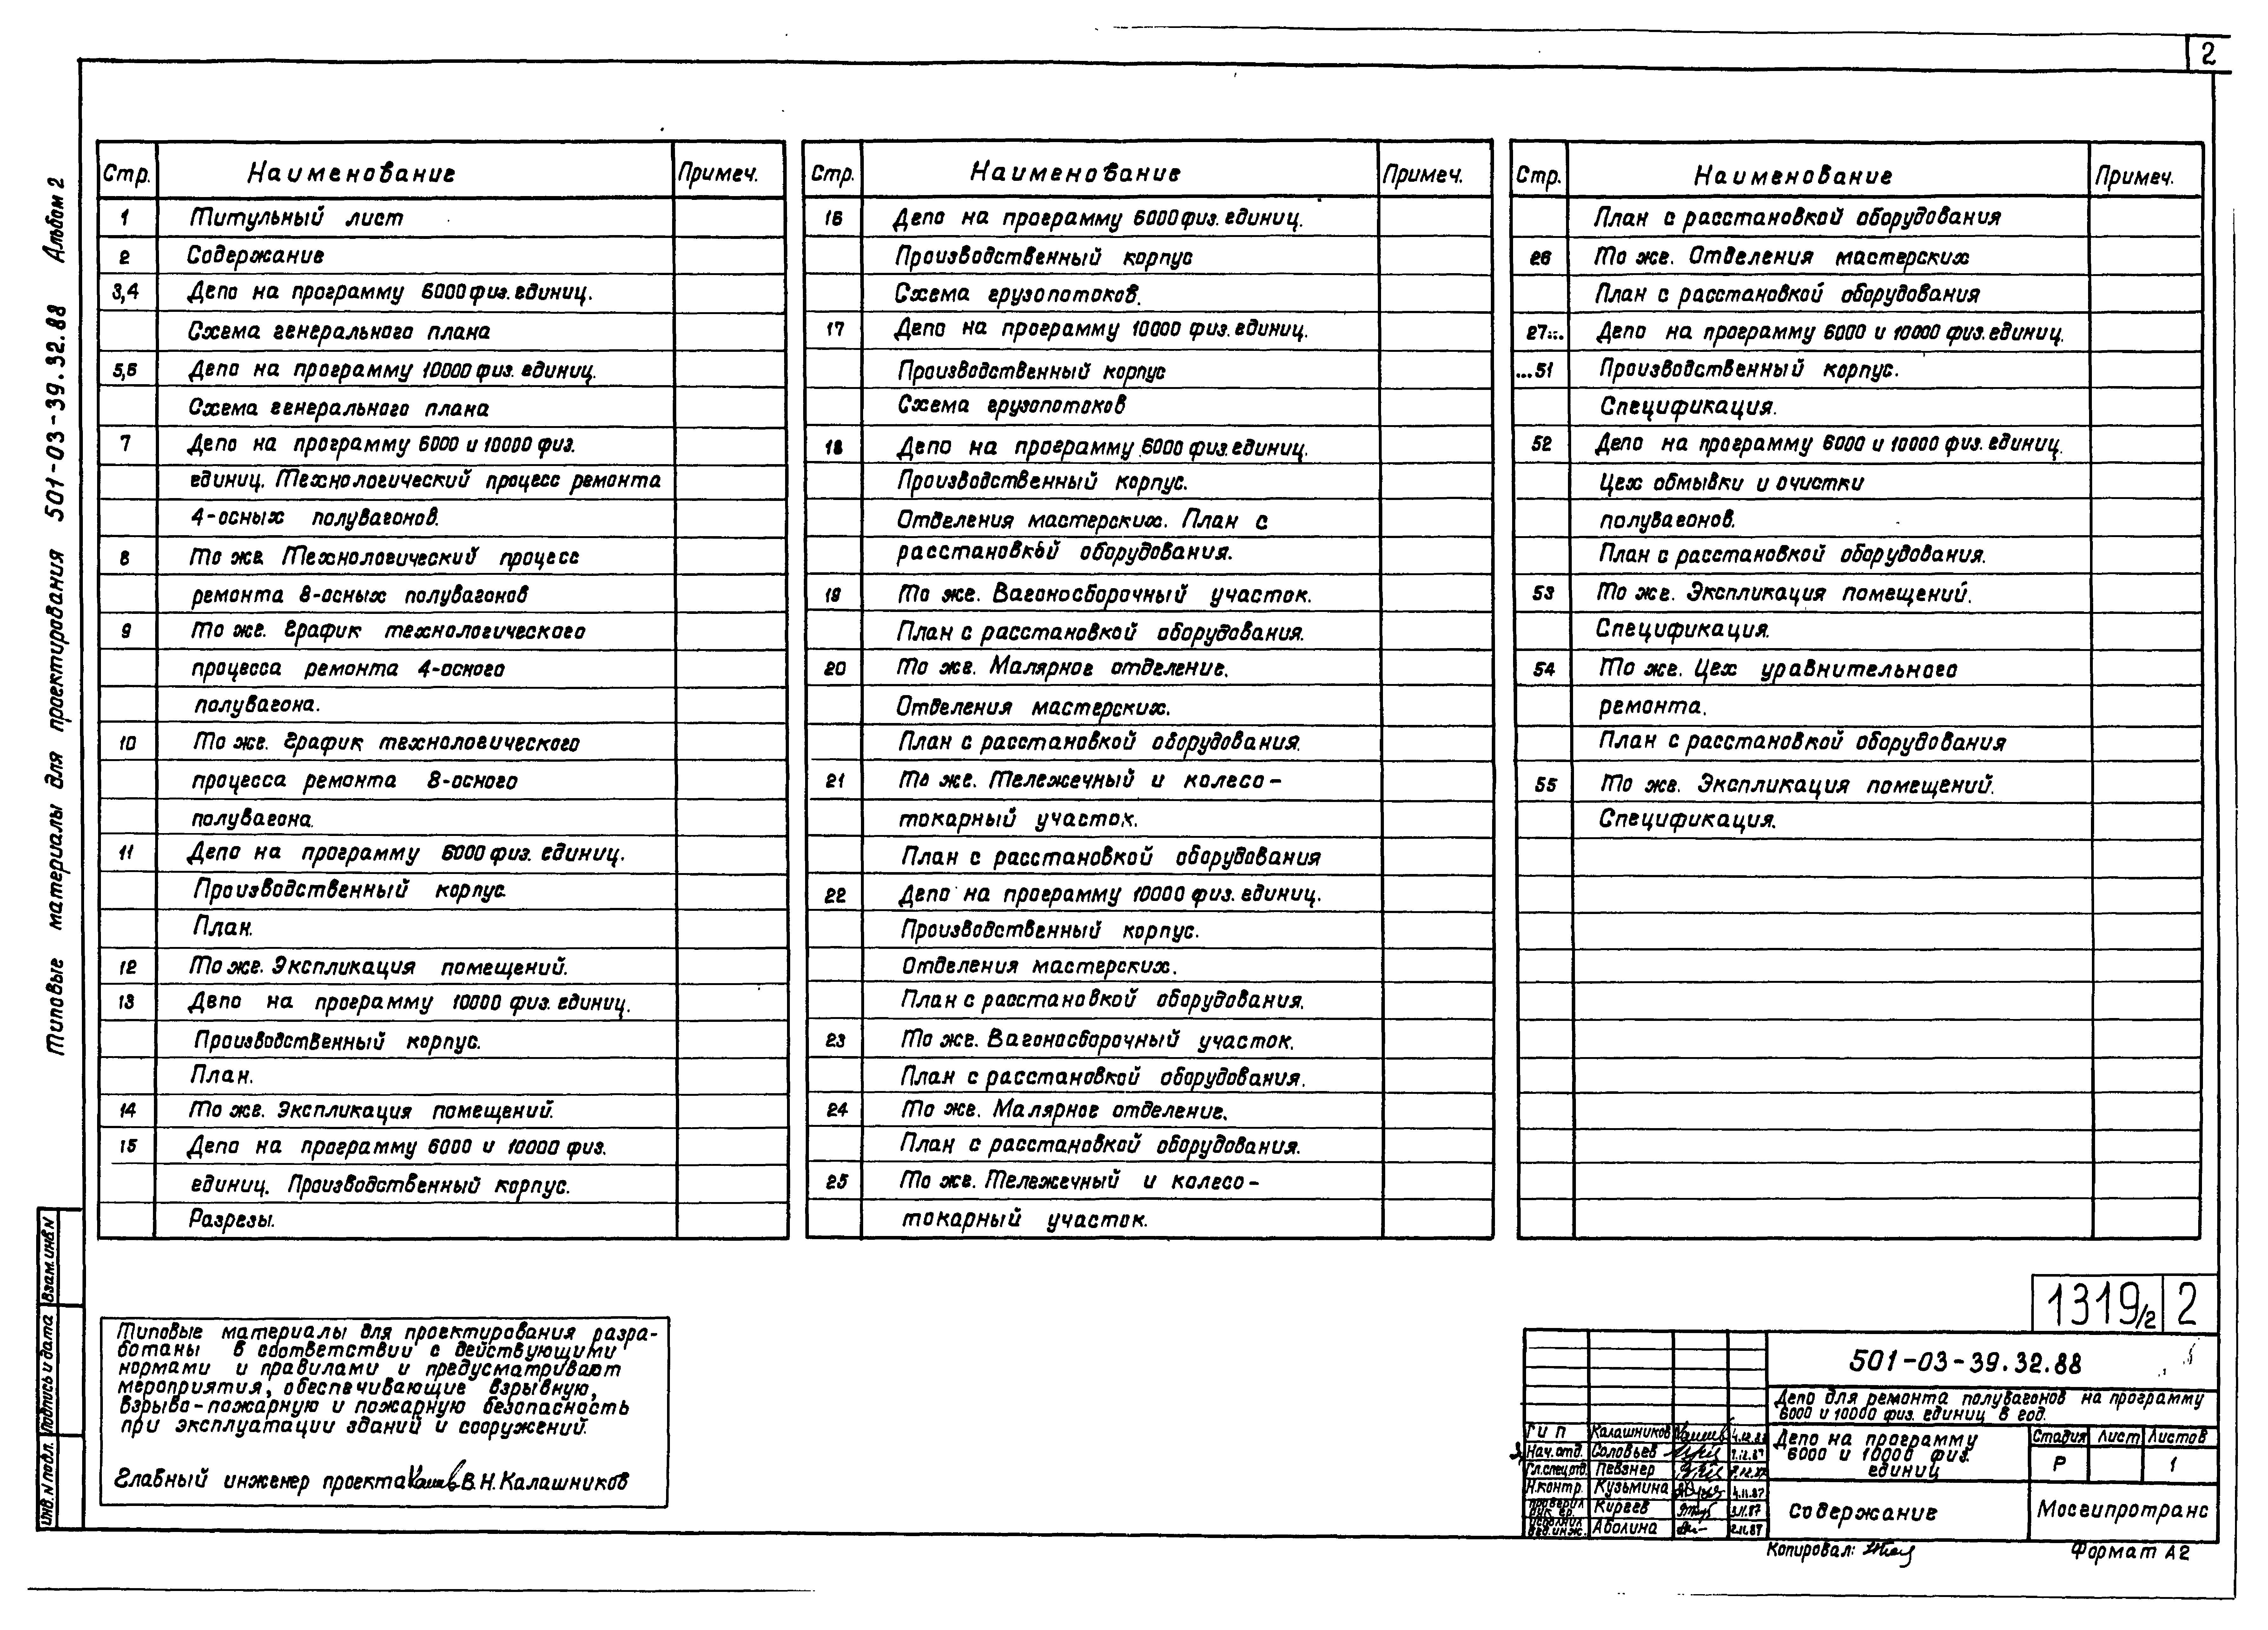 2
Типовые материалы для проектирования 501-03-39.32.88 Альбом 2
Стр. Наименование Примеч.
1 Титульный лист
2 Содержание
3,4 Депо на программу 6000 физ. единиц.
Схема генерального плана
5,6 Депо на программу 10000 физ. единиц.
Схема генерального плана
7 Депо на программу 6000 и 10000 физ.
единиц. Технологический процесс ремонта
4-осных полувагонов.
8 То же Технологический процесс
ремонта 8-осных полувагонов
9 То же. График технологического
процесса ремонта 4-осного
полувагона.
10 То же. График технологического
процесса ремонта 8-осного
полувагона.
11 Депо на программу 6000 физ. единиц.
Производственный корпус
План.
12 То же. Экспликация помещений.
13 Депо на программу 10000 физ. единиц.
Производственный корпус.
План.
14 То же. Экспликация помещений.
15 Депо на программу 6000 и 10000 физ.
единиц. Производственный корпус.
Разрезы.
Стр. Наименование Примеч.
16 Депо на программу 6000 физ. единиц.
Производственный корпус
Схема грузопотоков.
17 Депо на программу 10000 физ. единиц.
Производственный корпус
Схема грузопотоков
18 Депо на программу 6000 физ. единиц.
Производственный корпус.
Отделения мастерских. План с
расстановкой оборудования.
19 То же. Вагоносборочный участок.
План с расстановкой оборудования.
20 То же. Малярное отделение.
Отделения мастерских.
План с расстановкой оборудования.
21 То же. Тележечный и колесо-
токарный участок.
План с расстановкой оборудования
22 Депо на программу 10000 физ. единиц.
Производственный корпус.
Отделения мастерских.
План с расстановкой оборудования.
23 То же. Вагоносборочный участок.
План с расстановкой оборудования.
24 То же. Малярное отделение.
План с расстановкой оборудования.
25 То же. Тележечный и колесо-
токарный участок.
Стр. Наименование Примеч.
План с расстановкой оборудования
26 То же. Отделения мастерских
План с расстановкой оборудования
27... Депо на программу 6000 и 10000 физ. единиц.
...51 Производственный корпус.
Спецификация.
52 Депо на программу 6000 и 10000 физ. единиц.
Цех обмывки и очистки
полувагонов.
План с расстановкой оборудования.
53 То же. Экспликация помещений.
Спецификация.
54 То же. Цех уравнительного
ремонта.
План с расстановкой оборудования
55 То же. Экспликация помещений.
Спецификация.
Взам.инв.N
Подпись и дата
Инв.N подл.
Типовые материалы для проектирования разра-
ботаны в соответствии с действующими
нормами и правилами и предусматривают
мероприятия, обеспечивающие взрывную,
взрыво-пожарную и пожарную безопасность
при эксплуатации зданий и сооружений.
Главный инженер проекта В.Н.Калашников
1319/2 2
501-03-39.32.88
Депо для ремонта полувагонов на программу
6000 и 10000 физ. единиц в год.
ГИП Калашников
Нач.отд. Соловьев
Гл.спец.отд. Певзнер
Н.контр. Кузьмина 4.11.87
Проверил рук. гр. Киреев 3.11.87
Исполнил вед.инж. Аболина 2.11.87
Депо на программу
6000 и 10000 физ.
единиц
Стадия Лист Листов
Р 1
Содержание
Мосгипротранс
Копировал:
Формат А2